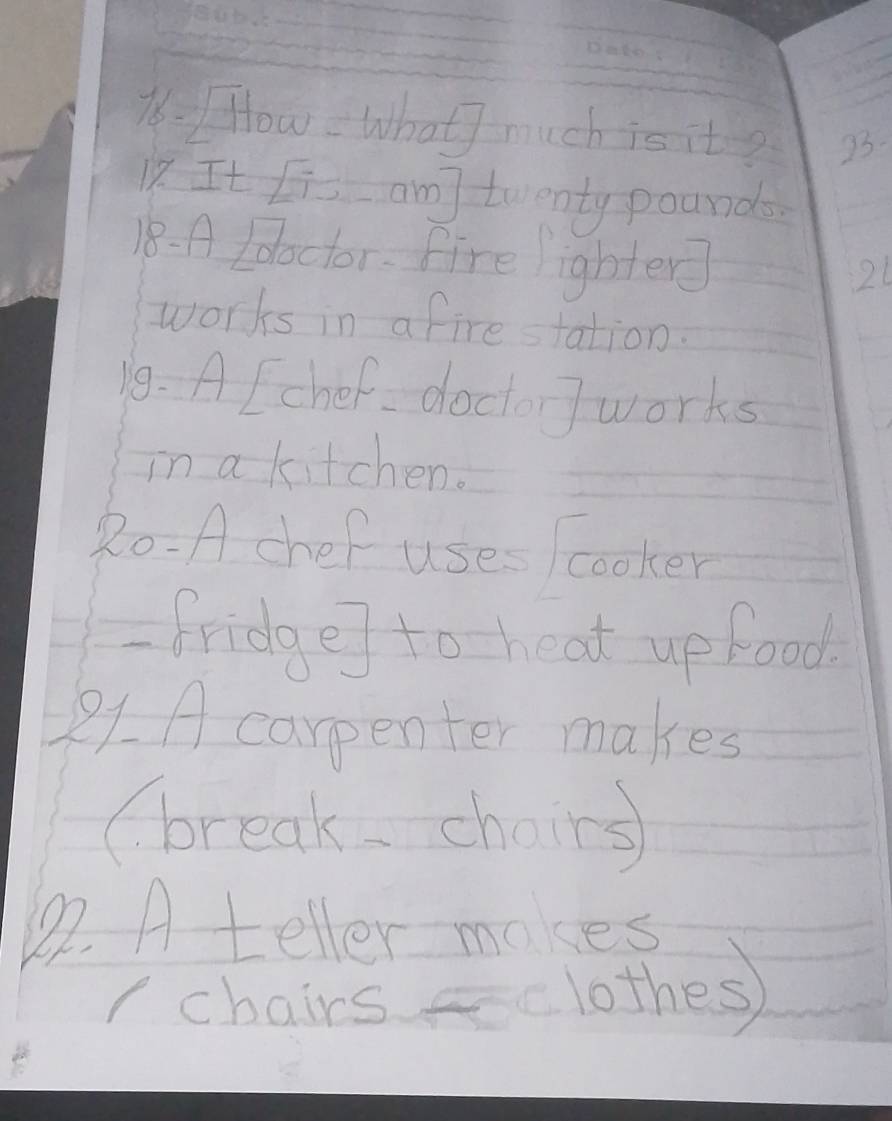 Sub.:
Date:
16-[How - What] much is it?
17. It [is - am] twenty pounds.
18-A [doctor - fire fighter]
works in a fire station.
19- A [chef - doctor] works
in a kitchen.
20-A chef uses [cooker
- fridge] to heat up food.
21- A carpenter makes
(break - chairs)
22. A teller makes
(chairs - clothes)
23-